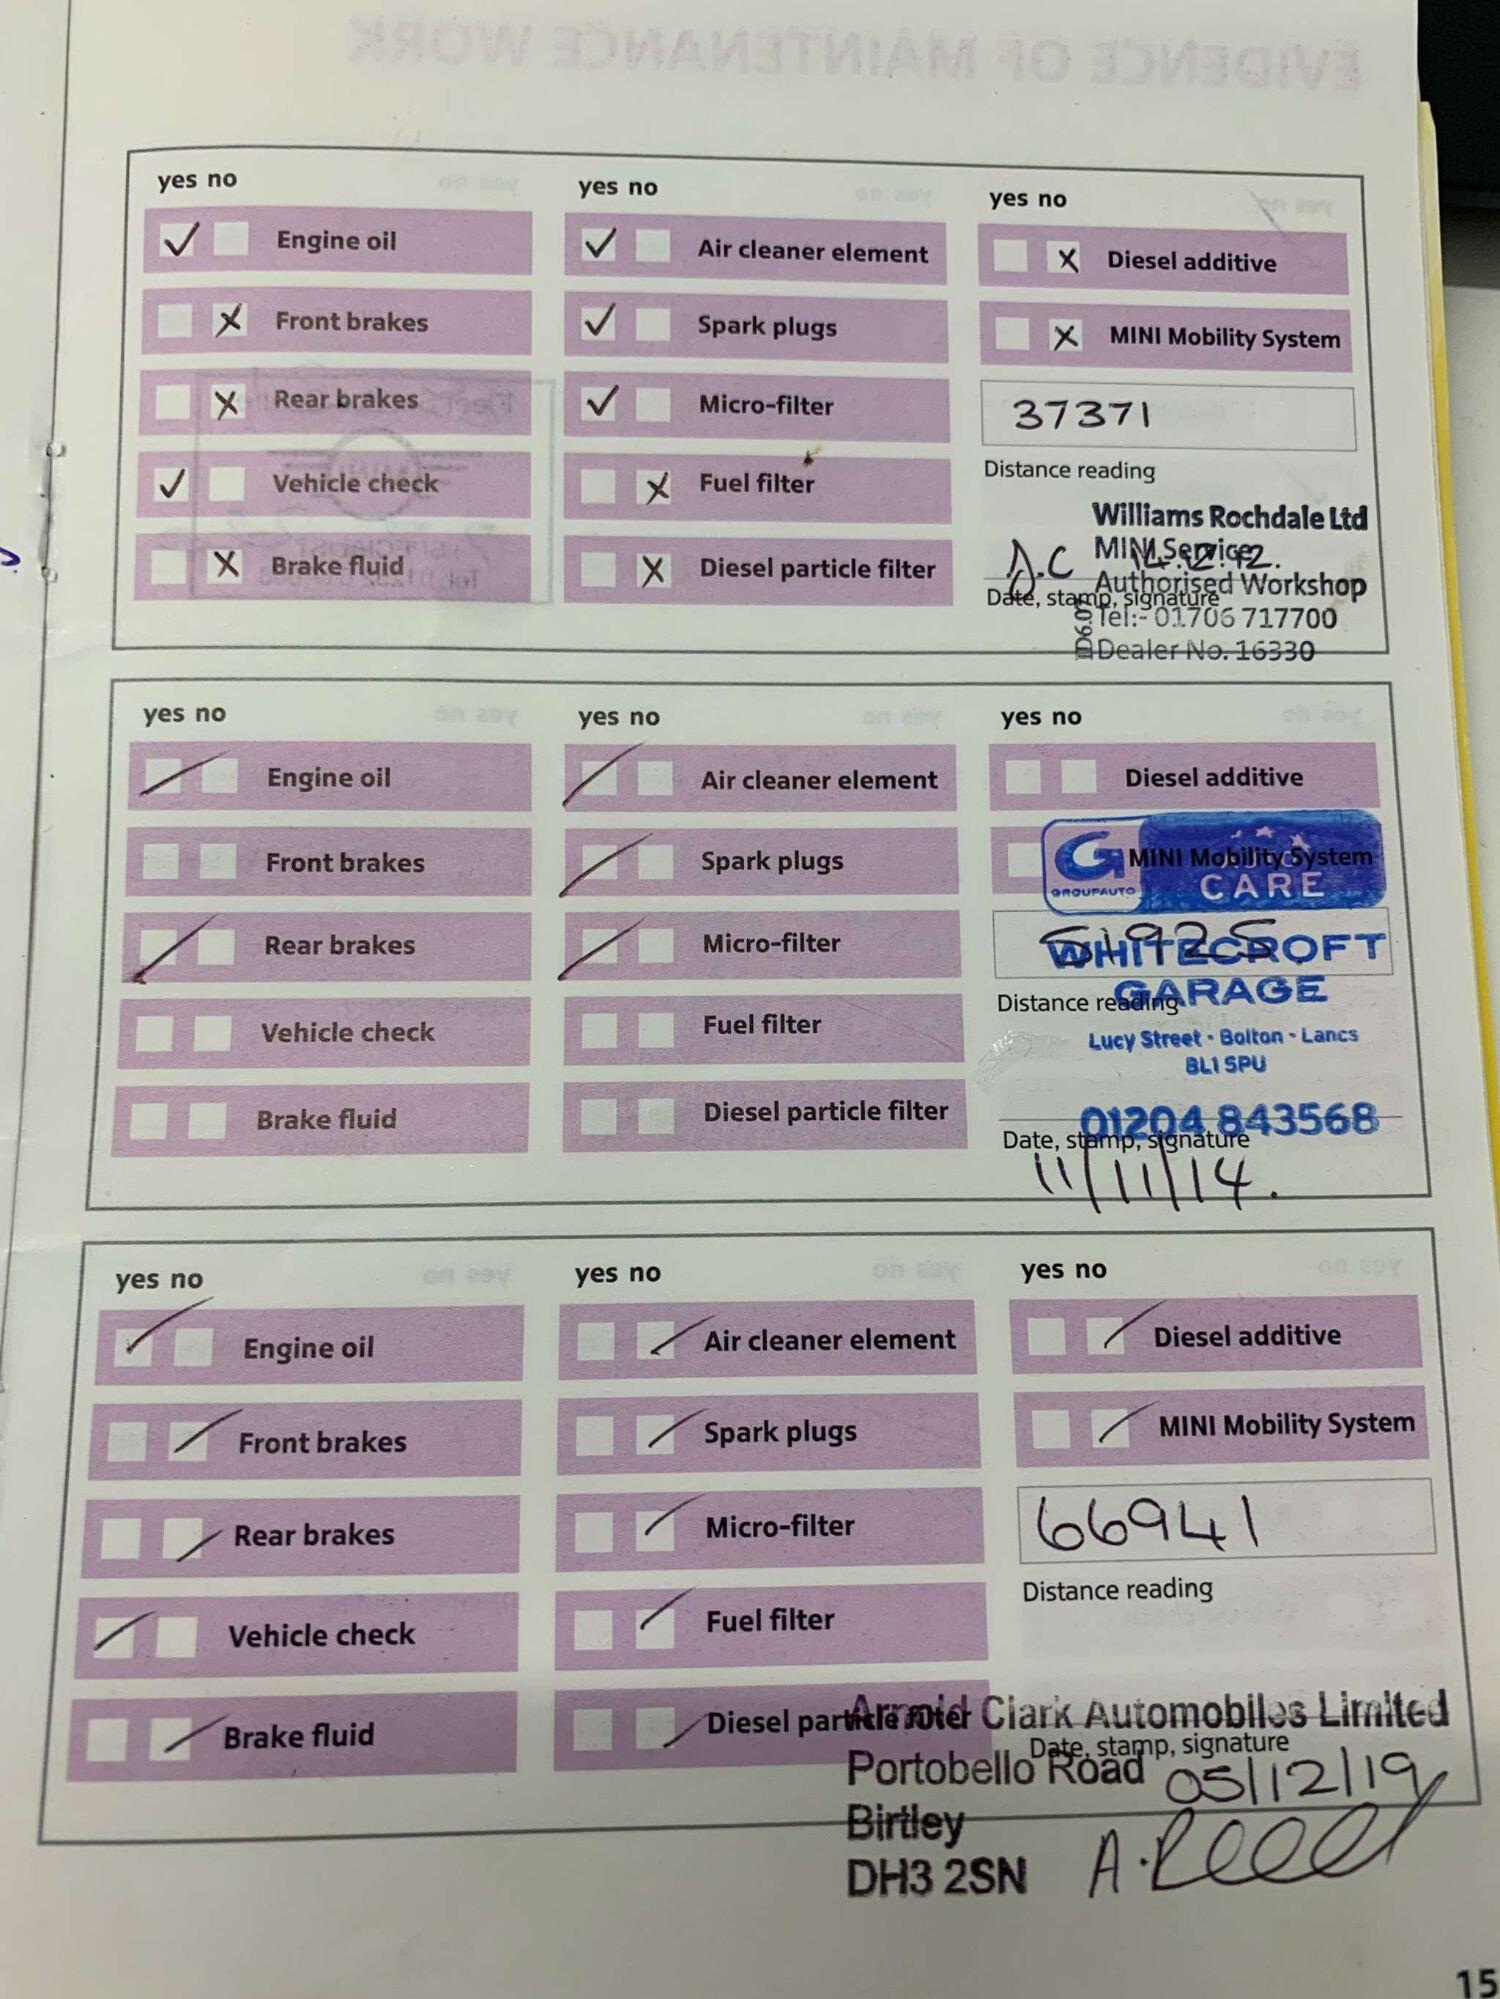 yes no
Engine oil
Front brakes
Rear brakes
Vehicle check
Brake fluid
yes no
Air cleaner element
Spark plugs
Micro-filter
Fuel filter
Diesel particle filter
yes no
Diesel additive
MINI Mobility System
37371
Distance reading
Williams Rochdale Ltd
MINI Service
J.C 14.12.12.
Authorised Workshop
Date, stamp, signature
Tel:- 01706 717700
Dealer No. 16330
yes no
Engine oil
Front brakes
Rear brakes
Vehicle check
Brake fluid
yes no
Air cleaner element
Spark plugs
Micro-filter
Fuel filter
Diesel particle filter
yes no
Diesel additive
MINI Mobility System
G GROUPAUTO
CARE
51925
WHITECROFT
GARAGE
Distance reading
Lucy Street - Bolton - Lancs
BL1 5PU
01204 843568
Date, stamp, signature
11/11/14.
yes no
Engine oil
Front brakes
Rear brakes
Vehicle check
Brake fluid
yes no
Air cleaner element
Spark plugs
Micro-filter
Fuel filter
Diesel particle filter
yes no
Diesel additive
MINI Mobility System
66941
Distance reading
Arnold Clark Automobiles Limited
Date, stamp, signature
Portobello Road
05/12/19
Birtley
DH3 2SN
15